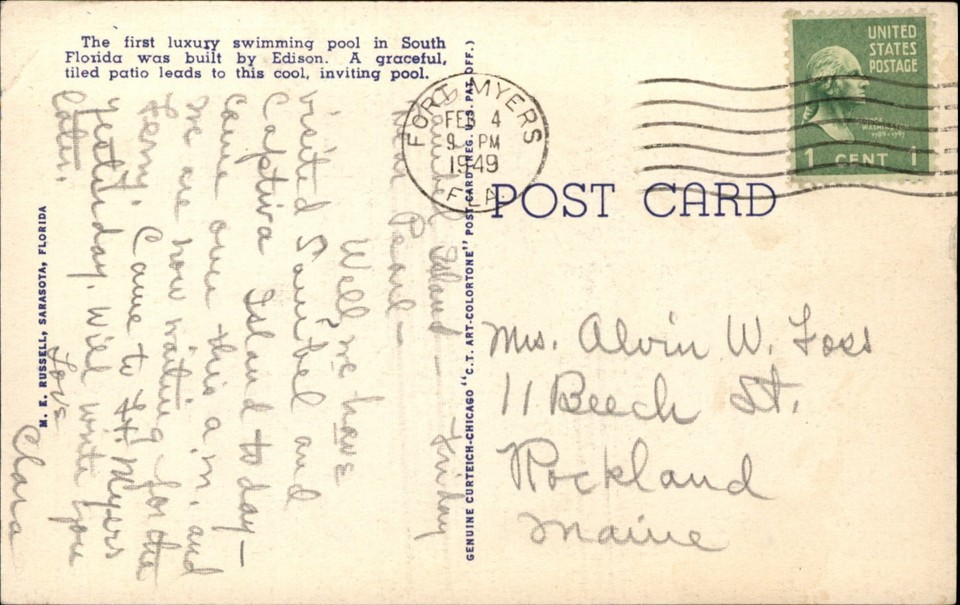 The first luxury swimming pool in South
Florida was built by Edison. A graceful,
tiled patio leads to this cool, inviting pool.
M. E. RUSSELL, SARASOTA, FLORIDA
GENUINE CURTEICH-CHICAGO "C.T. ART-COLORTONE" POST CARD (REG. U.S. PAT. OFF.)
FORT MYERS
FEB 4
9 PM
1949
FLA.
UNITED
STATES
POSTAGE
1 CENT 1
POST CARD
Sanibel Island — Friday
Dear Pearl —
Well we have
visited Sanibel and
Captiva Island to day —
Came over this a.m. and
we are now waiting for the
ferry. Came to Ft. Myers
yesterday. Will write you
later.
Love
Clara
Mrs. Alvin W. Foss
11 Beech St.
Rockland
Maine